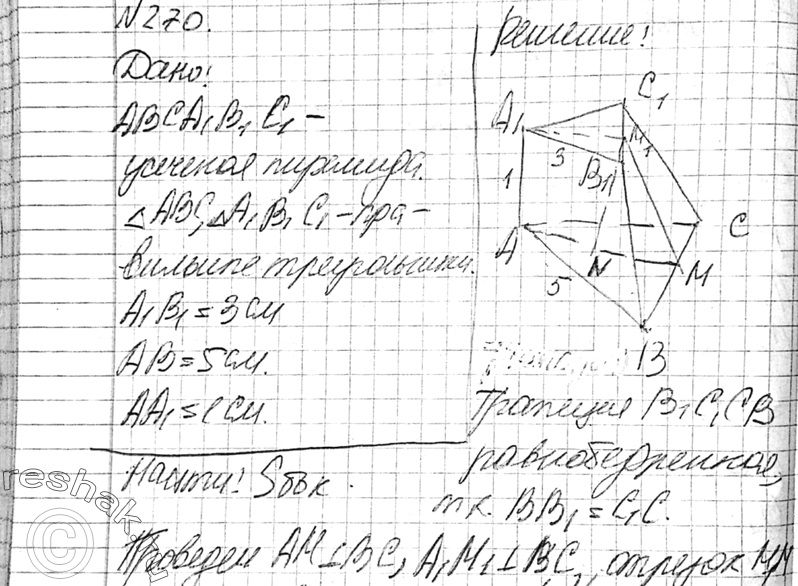 N270.
Дано:
ABCA₁B₁C₁ –
усеченая пирамида.
△ABC, △A₁B₁C₁ – пра-
вильные треугольники.
A₁B₁ = 3 см
AB = 5 см.
AA₁ = 1 см.
Найти: Sбок.
Решение:
C₁
A₁
M₁
3
B₁
1
C
A
N
M
5
B
Трапеция B₁C₁CB
равнобедренная,
т.к. BB₁ = C₁C.
Проведем AM⊥BC, A₁M₁⊥BC, отрезок M₁M
reshak.ru
©